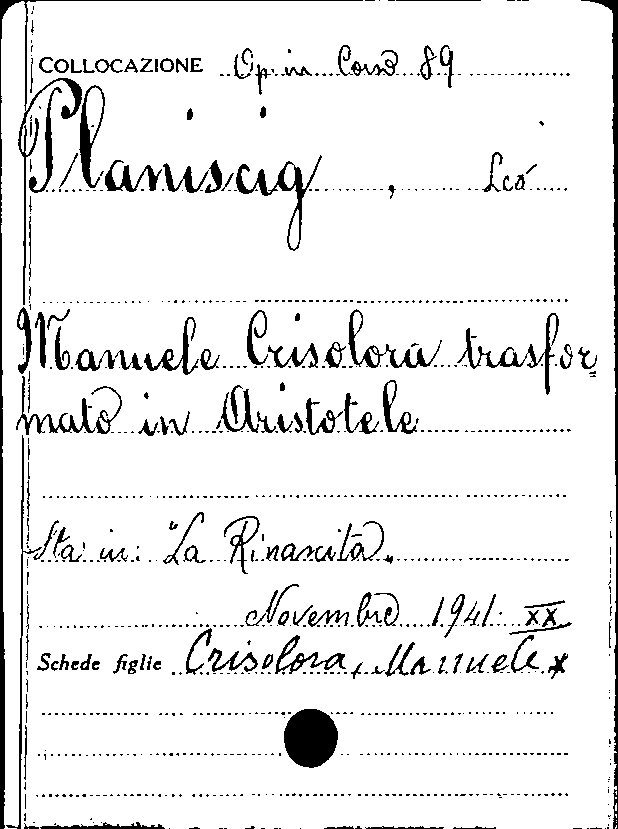 COLLOCAZIONE Op. in Corso 89
Planiscig, Leo
Manuele Crisolora trasfor=
mato in Aristotele
Sta in: "La Rinascita„
Novembre 1941. XX
Schede figlie Crisolora, Manuele x